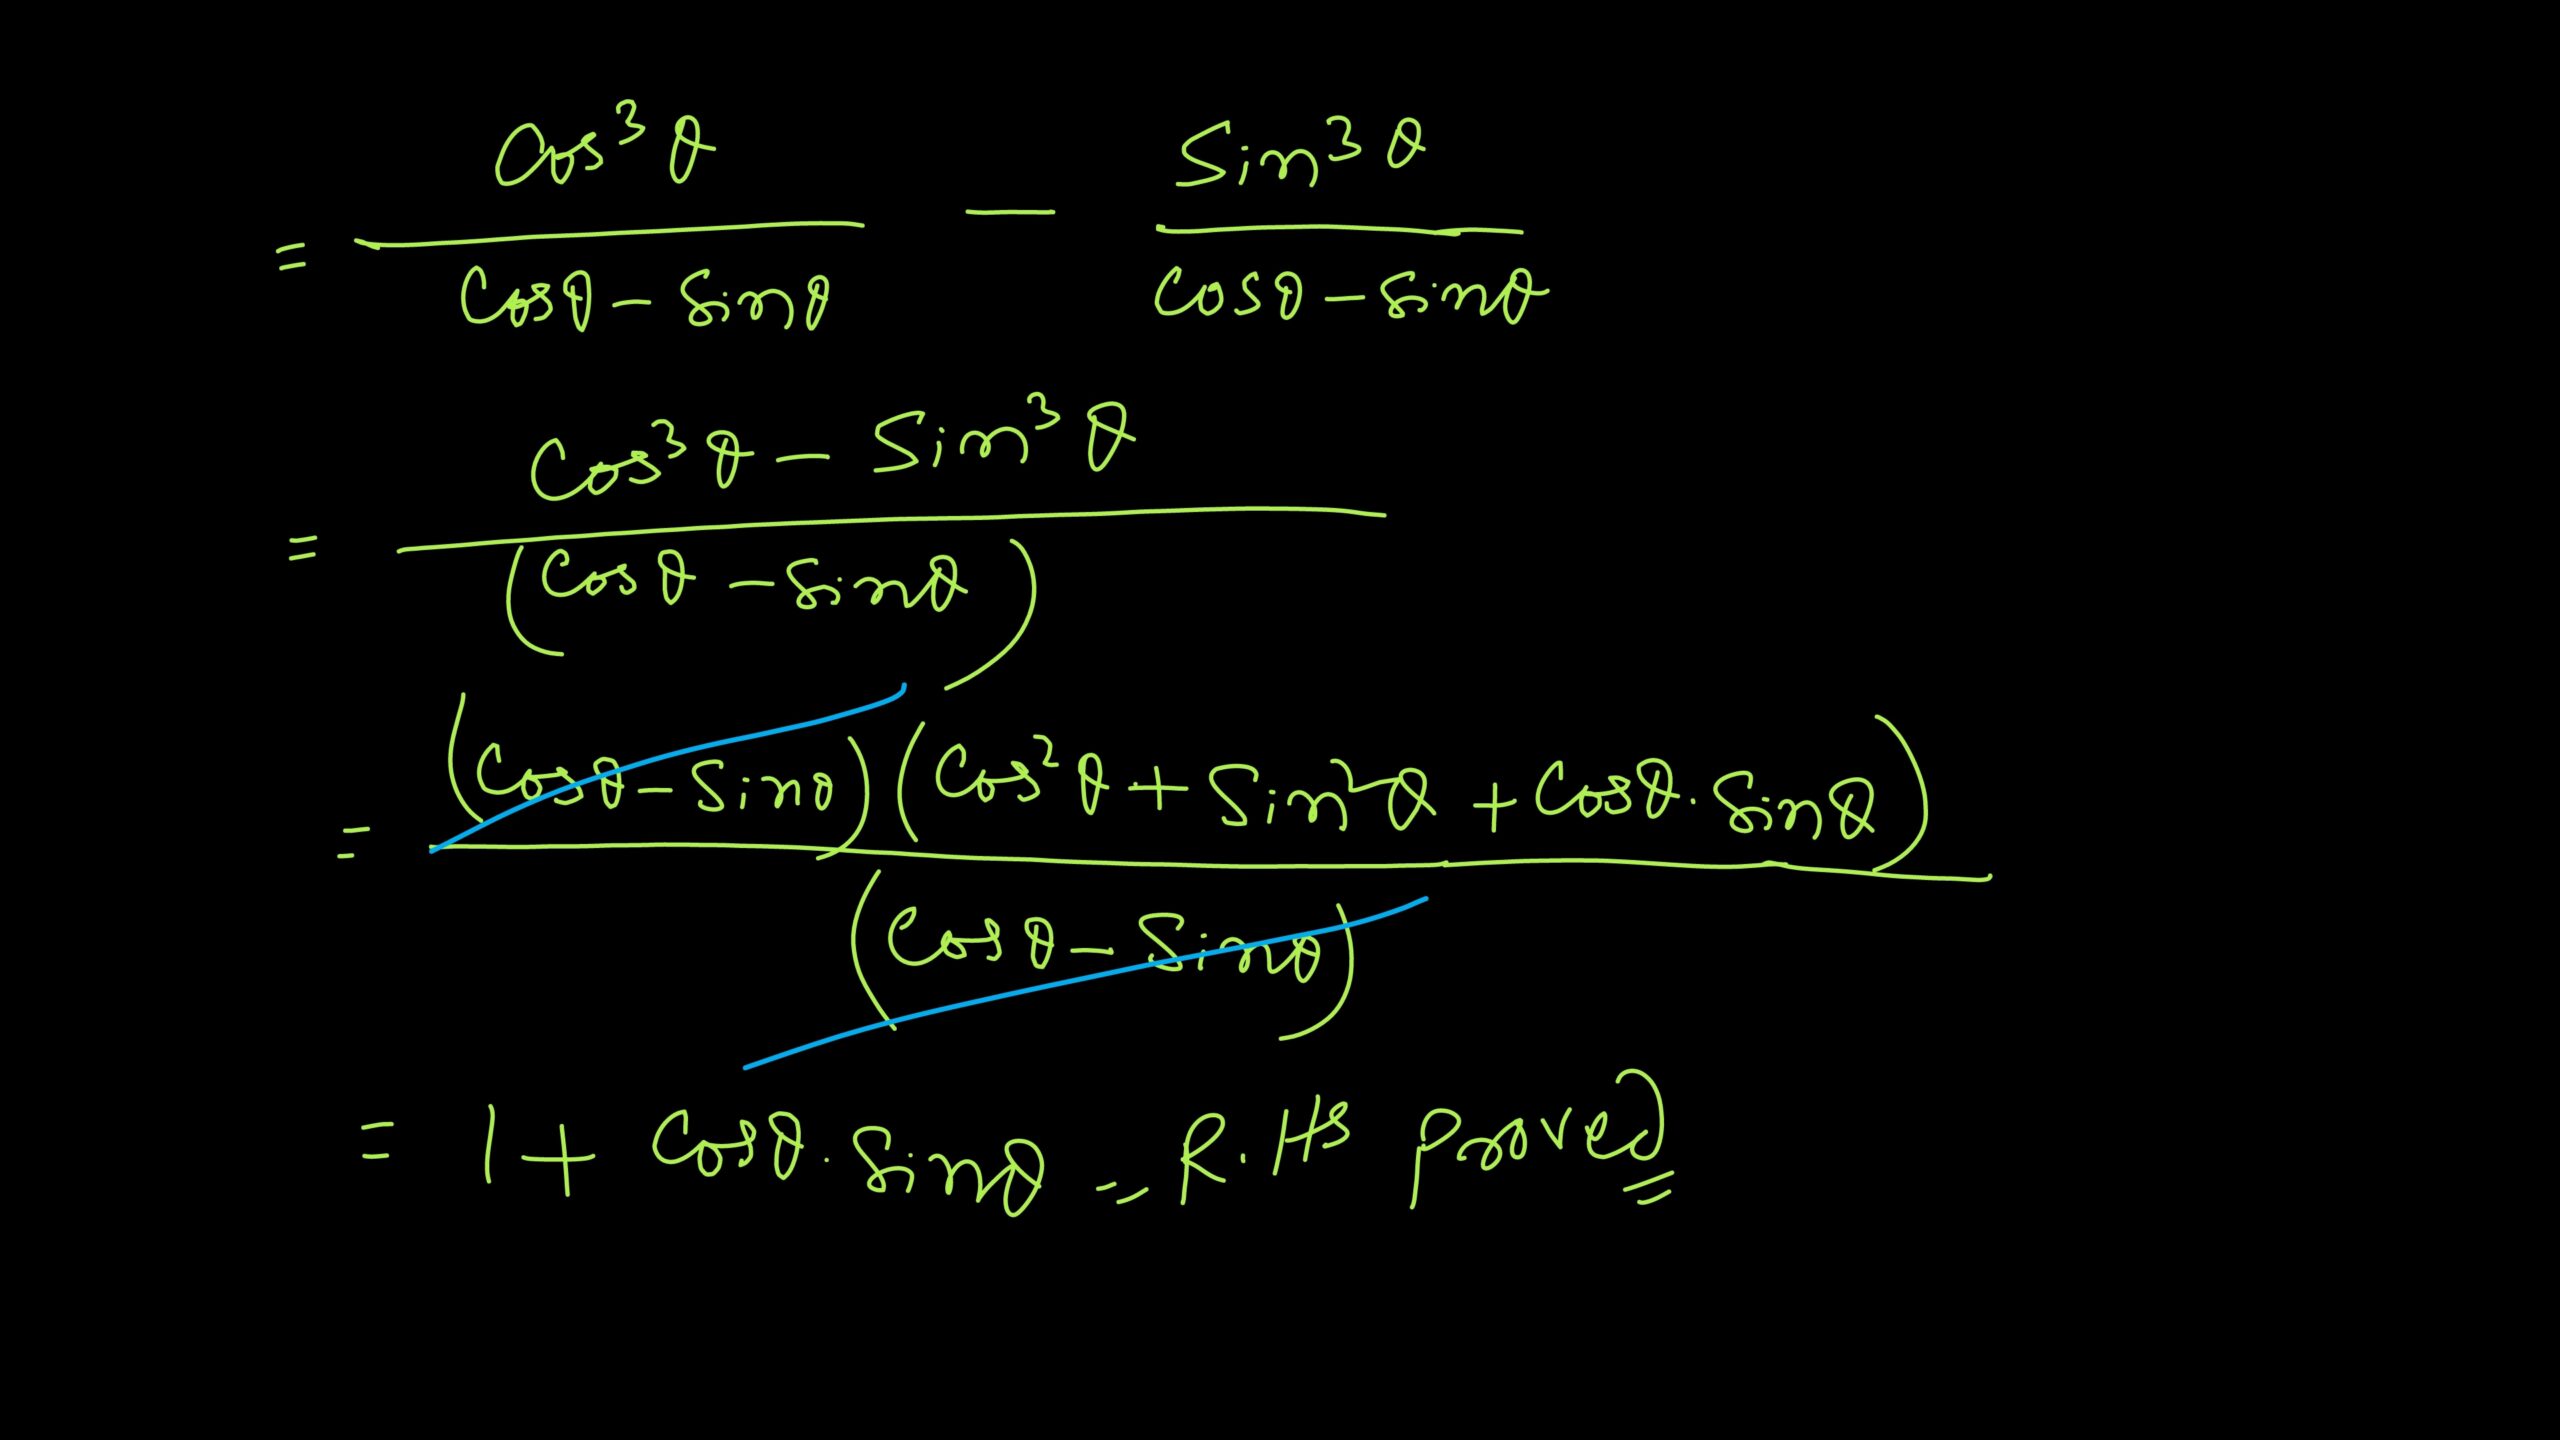 = Cos³θ / Cosθ - Sinθ — Sin³θ / Cosθ - Sinθ
= Cos³θ - Sin³θ / (Cosθ - Sinθ)
= (Cosθ - Sinθ)(Cos²θ + Sin²θ + Cosθ · Sinθ) / (Cosθ - Sinθ)
= 1 + Cosθ · Sinθ = R.Hs Proved